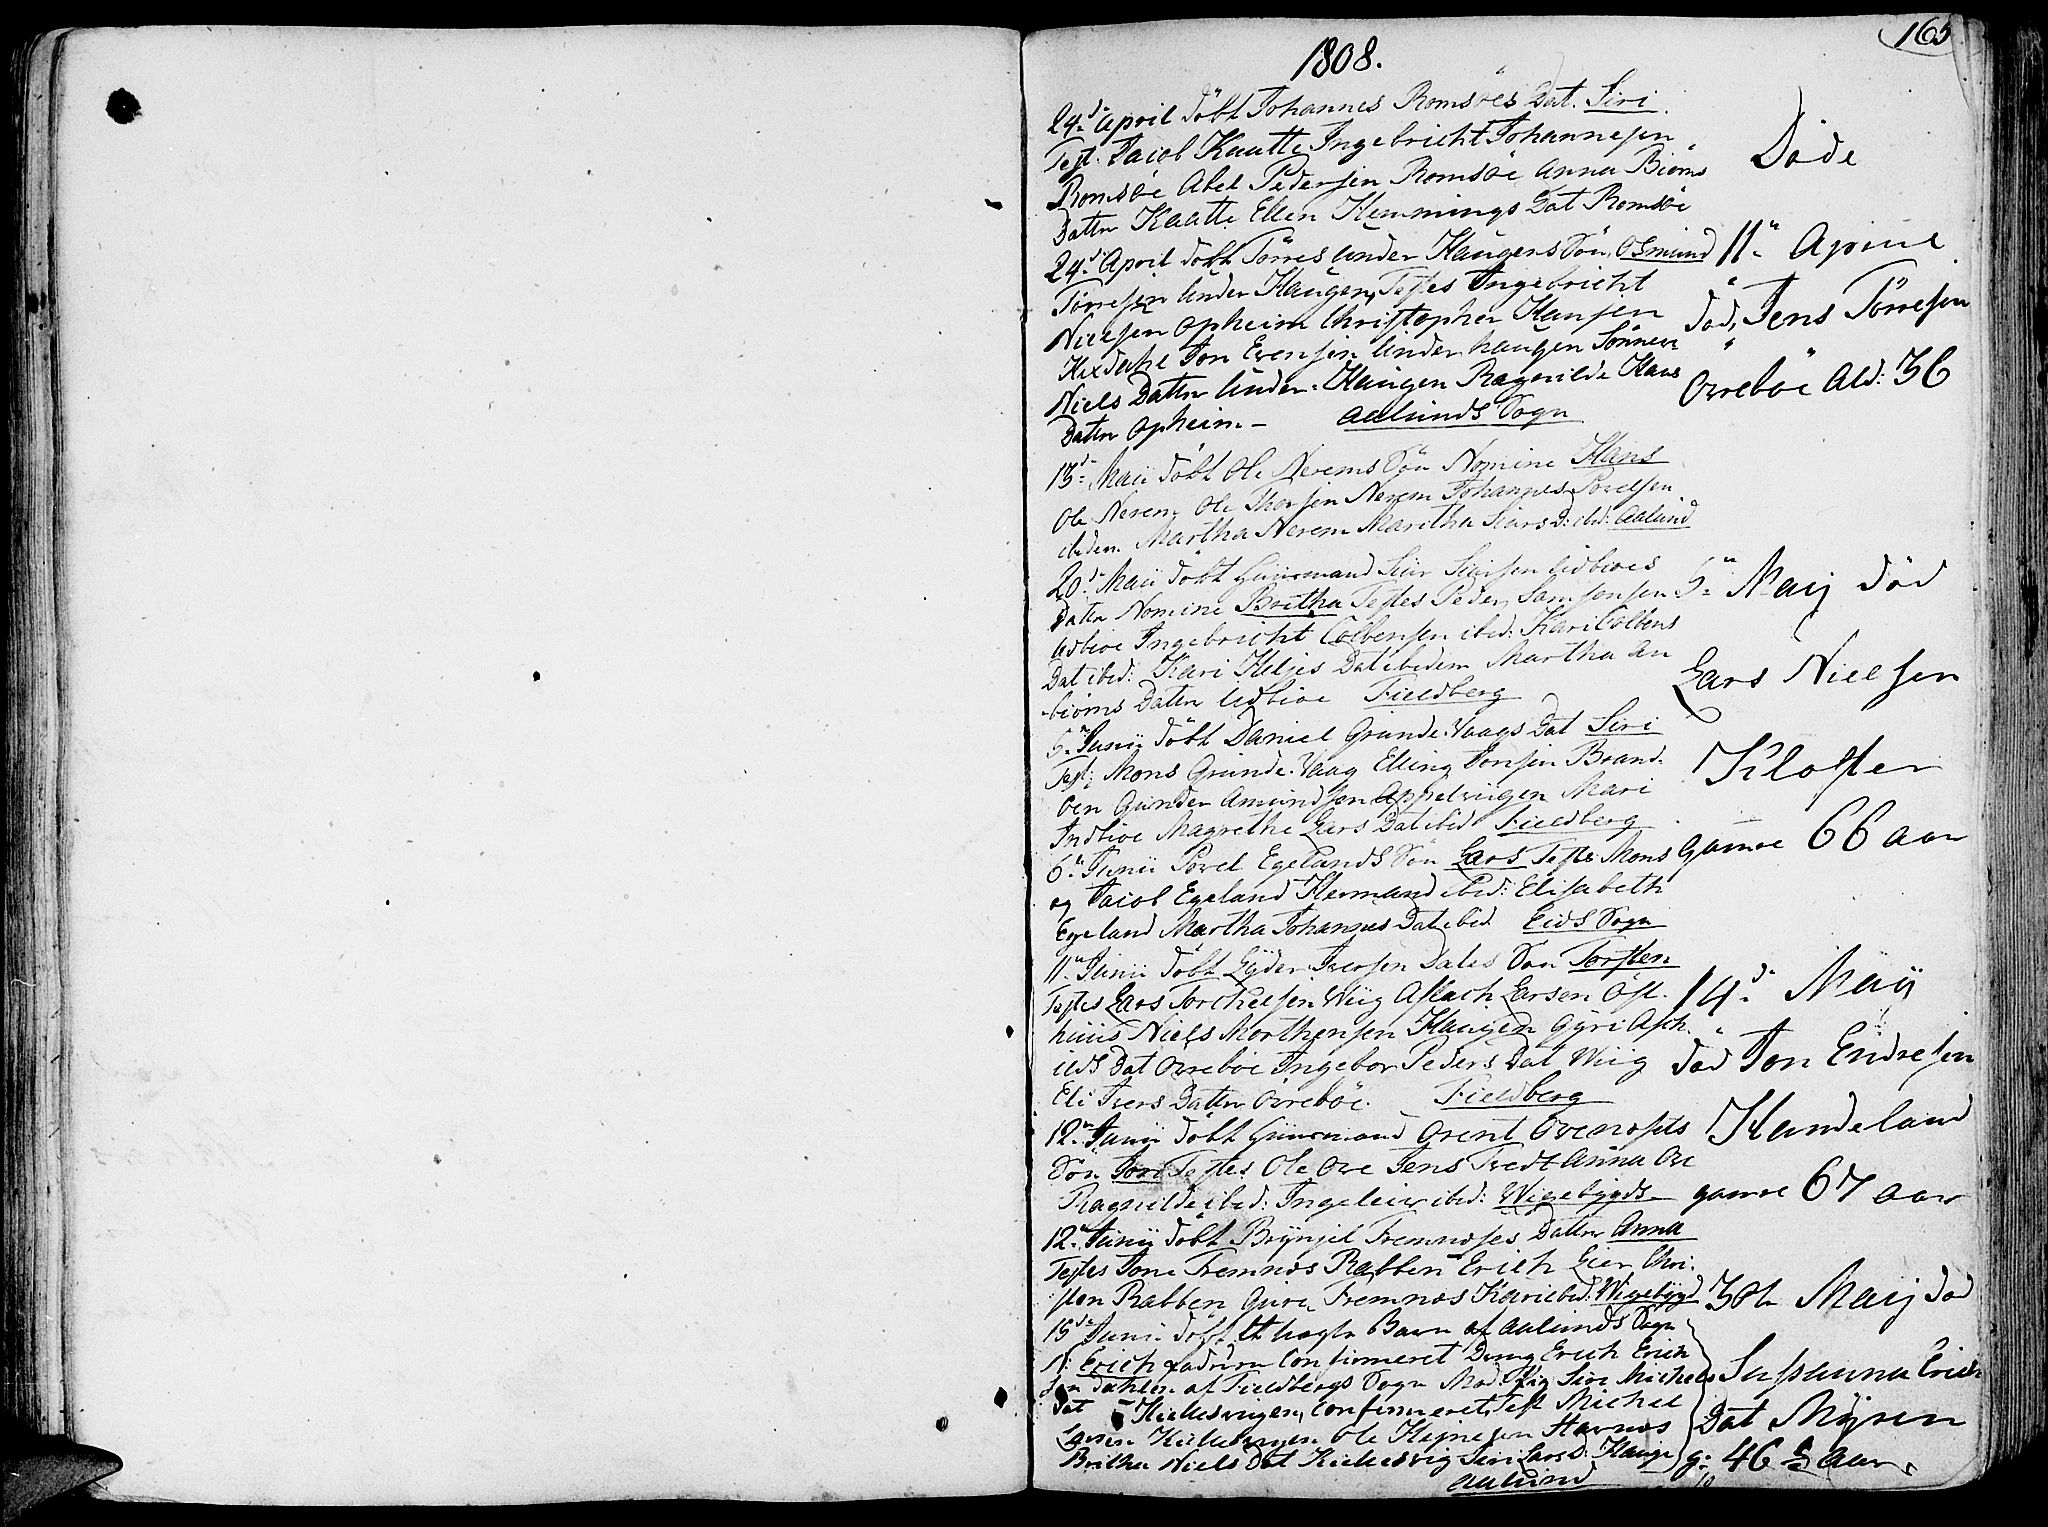 165
1808.
24.d April döbt Johannes Romsöes Dat. Siri
Test. Jacob Kaatte Ingebricht Johannesen
Romsöe Abel Pedersen Romsöe Anna Biörns
Datter Kaatte Ellen Hemmings Dat Romsöe
24.d April döbt Törres under Haugens Sön, Osmund
Törresen under Haugen, Testes Ingebricht
Nielsen Opheim Christopher Hansen
Jon Evensen under haugen
Niels Datter under Haugen Ragnilde Hans
Datter Opheim. -
Aalunds Sogn
13.d Maii döbt Ole Nerems Sön Nomine Hans
Ole Nerem, Ole Nerem Johannes Povelsen
ibidem Martha Nerem Maritha D: ibd: Aalund
20.d Maii döbt Huusmand Siur Siursen Udbioes
Datter Nomine Britha Testes Peder Samsonsen
Udbioe Ingebricht Colbensen ibid: Kari Colbens
Dat ibid: Kari Heljes Dat ibidem Martha An
biörns Datter Udbioe Fieldberg
5.n Junii döbt Daniel Grunde-Vaags Dat Siri
Test: Mons Grunde-Vaag Elling Jonsen Brand-
oen Gunder Amundsen Appelviigen Mari
Indbioe Magrethe Lars Dat ibid Fieldberg
6.n Junii Povel Egelands Sön Lars Testes Mons
og Jacob Egeland Hermand ibid: Elisabeth
Egeland Martha Johannes Dat ibid Eids Sogn
11.n Junii döbt Lyder Iversen Dales Sön Torsten
Testes Lars Torchelsen Wiig Aslach Larsen Öst-
huus Niels Morthensen Haugen Gyri Asch-
ilds Dat Ovreböe Ingebor Peders Dat Wiig
Eli Ivers Datter Ovreböe. Fieldberg
12.n Junii döbt Huusmand Orent
Sön Jon Testes Ole Ove Jens Tvedt Anna Ove
Ragnilde ibid: Ingeleiv ibid: Wigebygds
12.n Junii döbt Brynjel Fremnæses Datter Anna
Testes Jone Fremnæs Rabben Erich Eier Chri-
sten Rabben Guro Fremnæs Kari ibd: Wigebygd
15.d Junii döbt et Barn af Aalunds Sogn
N: Erich confirmeret Dreng Erich Erich
sen Dahlen af Fieldbergs Sogn Mod: Pig Siri Michels
Dat Kielesvigen, confirmeret, Test Michel
Larsen Kielesvigen Ole Hejnesen Havnæs
Britha Niels Dat Kielesvig Siri Lars D: Hauge
Aalund
Döde
11.n Aprill
död, Jens Törresen
Ovreböe Ald: 36
5.n Maij död
Lars Nielsen
Kloster
gamne 66 aar
14.d Maij
död Jon Endresen
Handeland
gamne 67 aar
30te Maij död
Susanna Erich
Dat Myren
g: 46 ½ aar.